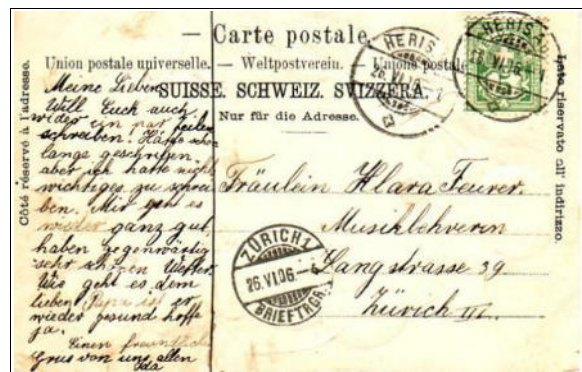 — Carte postale. —
Union postale universelle. — Weltpostverein. — Unione postale
SUISSE. SCHWEIZ. SVIZZERA.
Nur für die Adresse.
Côté réservé à l'adresse.
Lato riservato all' indirizzo.
HERISAU
26.VI.06.
HERISAU
26.VI.06.
Meine Lieben
Will Euch auch
wider ein par Zeilen
schreiben. Hätte schon
lange geschrieben,
aber ich hatte nicht
wichtiges zu schrei
ben. Mir geht es
wieder ganz gut,
haben gegenwärtig
sehr schönes Wetter.
Wie geht es dem
lieben Papa ist er
wieder gesund hoffe
ja.
Einen freundlich
Grus von uns allen
Ida
Fräulein Klara Feurer.
Musiklehrerin
Langstrasse 39
Zürich III.
ZÜRICH 1
26.VI.06.
BRIEFTRGR.